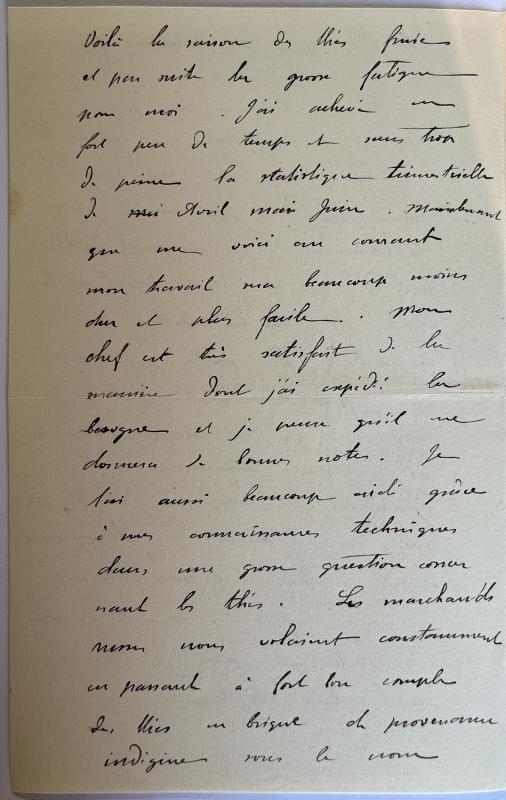 Voilà la saison des thés finie
et par suite la grosse fatigue
pour moi. J'ai achevé en
fort peu de temps et sans trop
de peine la statistique trimestrielle
de Avril mai Juin. Maintenant
que me voici au courant
mon travail sera beaucoup moins
dur et plus facile. Mon
chef est très satisfait de la
manière dont j'ai expédié la
besogne et je pense qu'il me
donnera de bonnes notes. Je
l'ai aussi beaucoup aidé grâce
à mes connaissances techniques
dans une grosse question concer
nant les thés. Les marchands
russes nous volaient constamment
en passant à fort bon compte
des thés en brique de provenance
indigène sous le nom